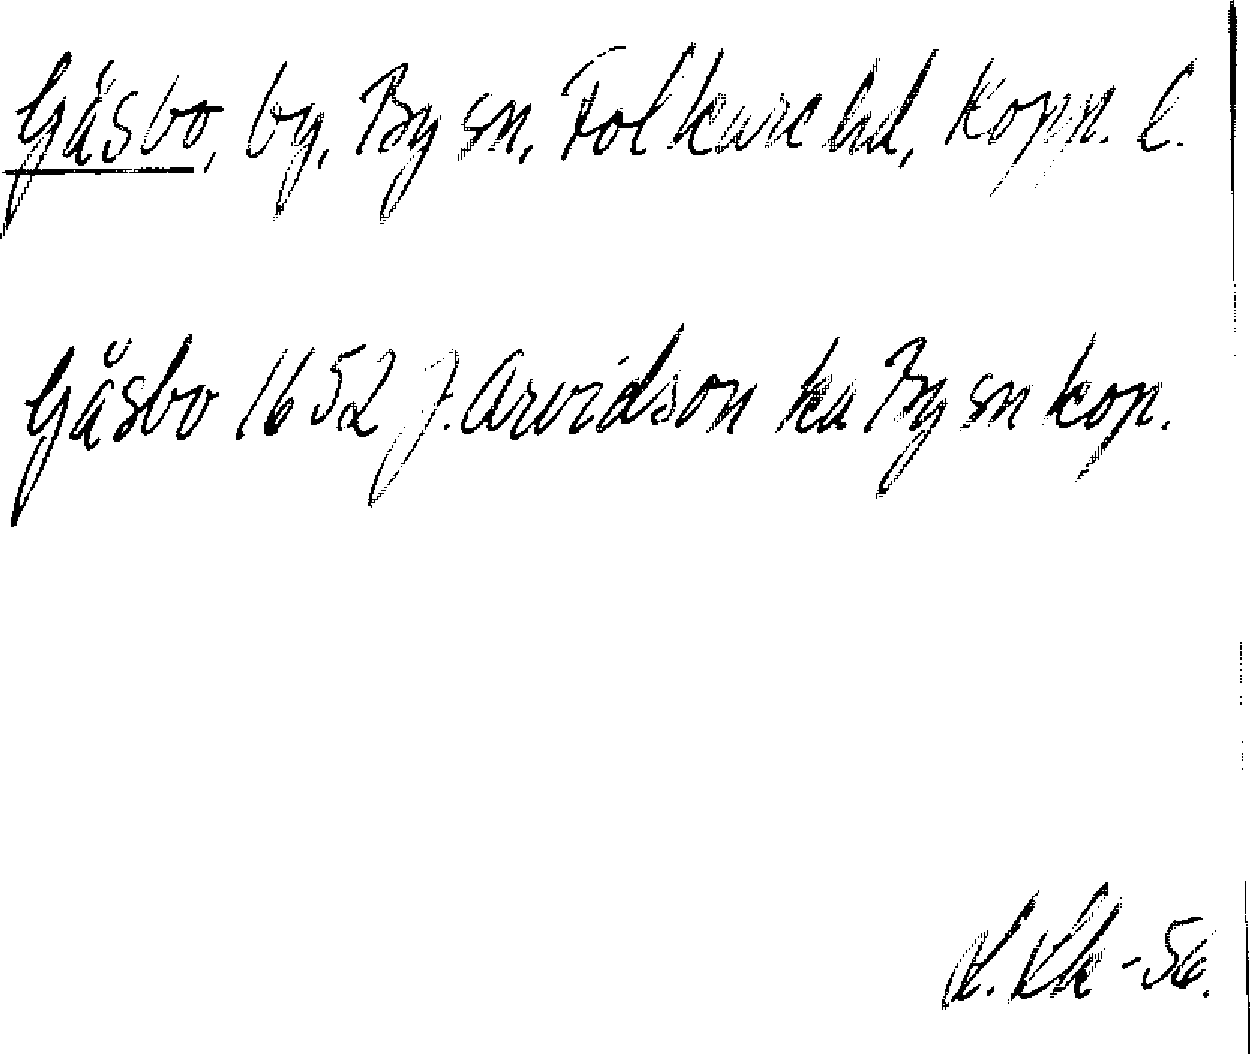 Gåsbo, by, By sn, Folkare hd, Kopp. l.
Gåsbo 1652 J. Arvidson ka By sn kop.
-56.